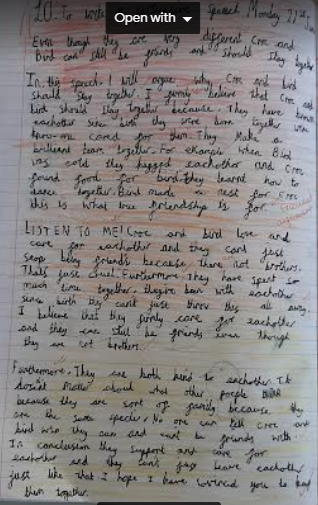 Open with
LO. To write speech Monday 21st
Even though they are very different Croc and
Bird can still be friends and should stay together
In this speech, I will argue why Croc and bird
should stay together. I firmly believe that Croc and
bird should stay together because. They have known
eachother since birth they were born together
cared for them. They Make a
brilliant team together. For example when Bird
was cold they hugged eachother and Croc
found food for bird they learnt how to
dance together. Bird made a nest for Croc
this is what true friendship is for.
LISTEN TO ME! Croc and bird love and
care for eachother and they cant just
stop being friends because there not brothers.
Thats just cruel. Furthermore They have spent so
much time together. theyve been with eachother
since birth they can't just throw this all away.
I believe that they firmly care for eachother
and they can still be friends even though
they are not brothers.
Furthermore. They are both kind to eachother. It
doesnt matter about what other people
because they are sort of family because they
are the same species. No one can tell Croc and
bird who they can and cant be friends with.
In conclusion they support and care for
eachother and they can't just leave eachother
just like that I hope I have convinced you to keep
them together.